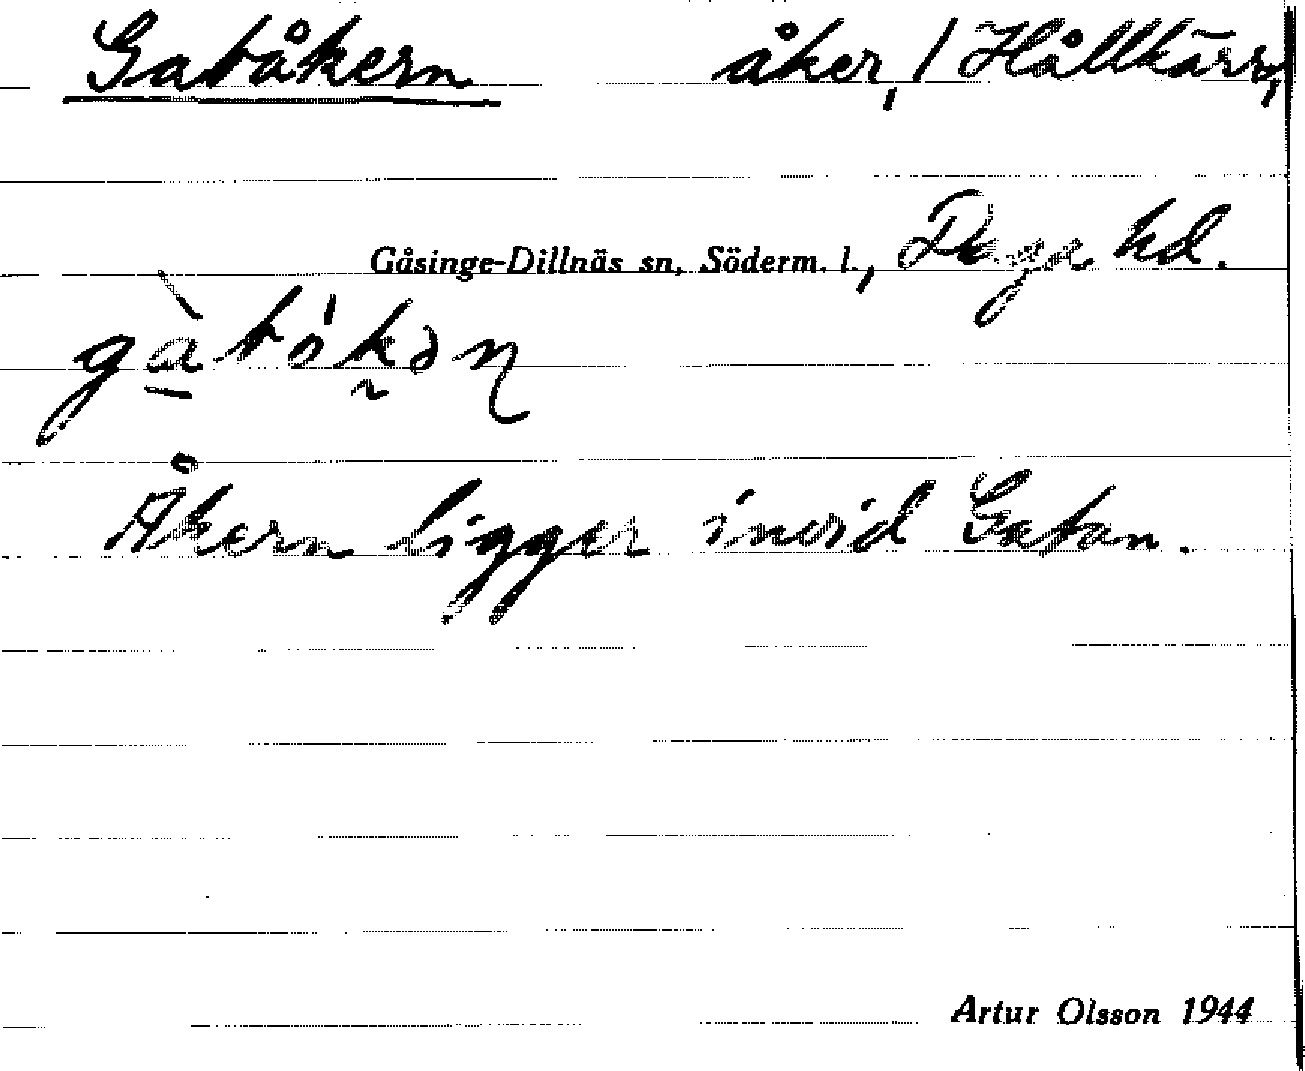 Gatåkern åker, / Hållkärr,
Gåsinge-Dillnäs sn, Söderm. l., Daga hd.
Åkern ligger invid Gatan.
Artur Olsson 1944